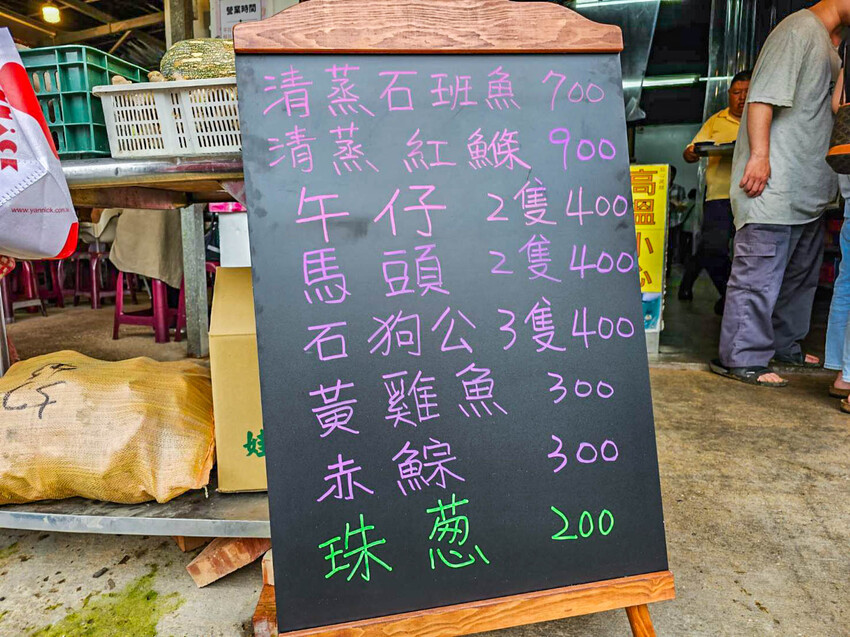 營業時間
清蒸石班魚 700
清蒸紅鰷 900
午仔 2隻400
馬頭 2隻400
石狗公 3隻400
黃雞魚 300
赤鯮 300
珠葱 200
www.yannick.com.tw
高溫小心
娃